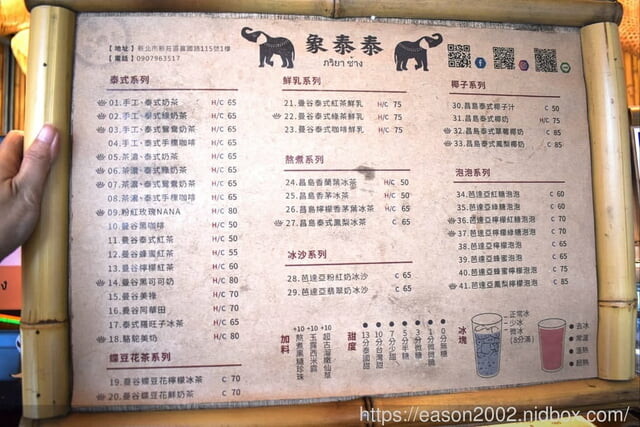 【地址】新北市新莊區富國路115號1樓
【電話】0907963517
象泰泰
泰式系列
01.手工·泰式奶茶 H/C 65
02.手工·泰式綠奶茶 H/C 65
03.手工·泰式鴛鴦奶茶 H/C 65
04.手工·泰式手標咖啡 H/C 65
05.茶滬·泰式奶茶 H/C 65
06.茶滬·泰式綠奶茶 H/C 65
07.茶滬·泰式鴛鴦奶茶 H/C 65
08.茶滬·泰式手標咖啡 H/C 65
09.粉紅玫瑰NANA H/C 80
10.曼谷黑咖啡 H/C 50
11.曼谷泰式紅茶 H/C 50
12.曼谷蜂蜜紅茶 H/C 55
13.曼谷檸檬紅茶 H/C 60
14.曼谷黑可可奶 H/C 80
15.曼谷美祿 H/C 70
16.曼谷阿華田 H/C 70
17.泰式羅旺子冰茶 C 65
18.駱駝美奶 H/C 80
蝶豆花茶系列
19.曼谷蝶豆花檸檬冰茶 C 70
20.曼谷蝶豆花鮮奶茶 C 70
鮮乳系列
21.曼谷泰式紅茶鮮乳 H/C 75
22.曼谷泰式綠茶鮮乳 H/C 75
23.曼谷泰式咖啡鮮乳 H/C 75
熬煮系列
24.昌島香蘭葉冰茶 H/C 50
25.昌島香茅冰茶 H/C 50
26.昌島檸檬香茅葉冰茶 H/C 65
27.昌島泰式鳳梨冰茶 C 65
冰沙系列
28.芭達亞粉紅奶冰沙 C 65
29.芭達亞翡翠奶冰沙 C 65
椰子系列
30.昌島泰式椰子汁 C 50
31.昌島泰式椰奶 H/C 75
32.昌島泰式草莓椰奶 C 85
33.昌島泰式鳳梨椰奶 C 85
泡泡系列
34.芭達亞紅糖泡泡 C 60
35.芭達亞綠糖泡泡 C 60
36.芭達亞檸檬紅糖泡泡 C 70
37.芭達亞檸檬綠糖泡泡 C 70
38.芭達亞檸檬泡泡 C 65
39.芭達亞蜂蜜泡泡 C 65
40.芭達亞蜂蜜檸檬泡泡 C 75
41.芭達亞鳳梨檸檬泡泡 C 85
加料
+10 熬煮黑糖珍珠
+10 玉露西米露
+10 超古溜嫩仙草
甜度
13分泰國甜
10分台灣甜
7分少甜
5分半糖
3分微糖
1分微微糖
0分無糖
冰塊
正常冰
少冰
微冰
(8分滿)
去冰
常溫
溫熱
超熱
https://eason2002.nidbox.com/